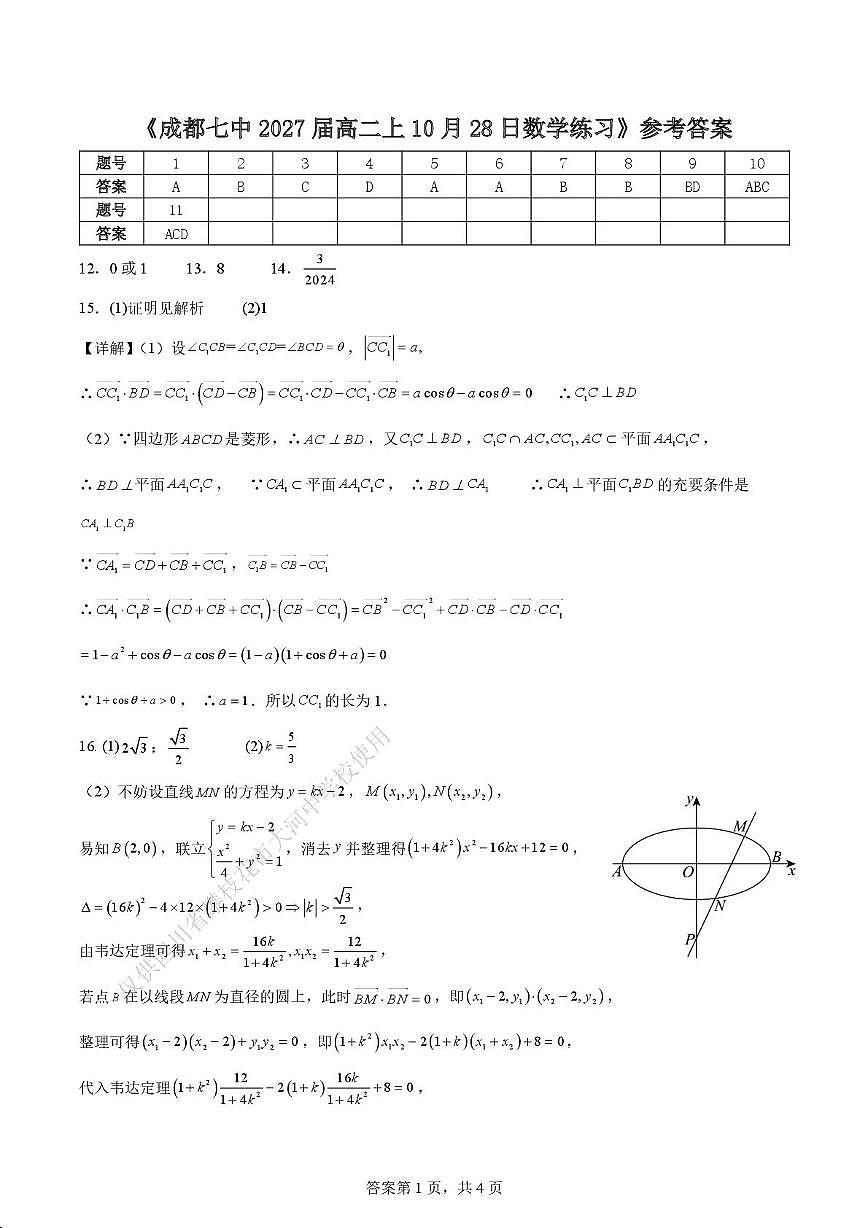 《成都七中 2027 届高二上 10 月 28 日数学练习》参考答案
题号 1 2 3 4 5 6 7 8 9 10
答案 A B C D A A B B BD ABC
题号 11
答案 ACD
12．0 或 1 13．8 14．3/2024
15．(1)证明见解析 (2)1
【详解】（1）设∠C₁CB=∠C₁CD=∠BCD=θ，|CC₁|=a,
∴CC₁·BD=CC₁·(CD−CB)=CC₁·CD−CC₁·CB=a cosθ−a cosθ=0 ∴C₁C⊥BD
（2）∵四边形ABCD是菱形，∴AC⊥BD，又C₁C⊥BD，C₁C∩AC,CC₁,AC⊂平面AA₁C₁C，
∴BD⊥平面AA₁C₁C， ∵CA₁⊂平面AA₁C₁C， ∴BD⊥CA₁ ∴CA₁⊥平面C₁BD的充要条件是
CA₁⊥C₁B
∵CA₁=CD+CB+CC₁，C₁B=CB−CC₁
∴CA₁·C₁B=(CD+CB+CC₁)·(CB−CC₁)=CB²−CC₁²+CD·CB−CD·CC₁
=1−a²+cosθ−a cosθ=(1−a)(1+cosθ+a)=0
∵1+cosθ+a>0， ∴a=1．所以CC₁的长为1．
16. (1)2√3；√3/2 (2)k=5/3
（2）不妨设直线MN的方程为y=kx−2，M(x₁,y₁),N(x₂,y₂)，
易知B(2,0)，联立{y=kx−2 x²/4+y²=1，消去y并整理得(1+4k²)x²−16kx+12=0，
Δ=(16k)²−4×12×(1+4k²)>0⇒|k|>√3/2，
由韦达定理可得x₁+x₂=16k/(1+4k²),x₁x₂=12/(1+4k²)，
若点B在以线段MN为直径的圆上，此时BM·BN=0，即(x₁−2,y₁)·(x₂−2,y₂)，
整理可得(x₁−2)(x₂−2)+y₁y₂=0，即(1+k²)x₁x₂−2(1+k)(x₁+x₂)+8=0，
代入韦达定理(1+k²)12/(1+4k²)−2(1+k)16k/(1+4k²)+8=0，
y
M
A
O
B
x
N
P
仅供四川省攀枝花市大河中学校使用
答案第 1 页，共 4 页